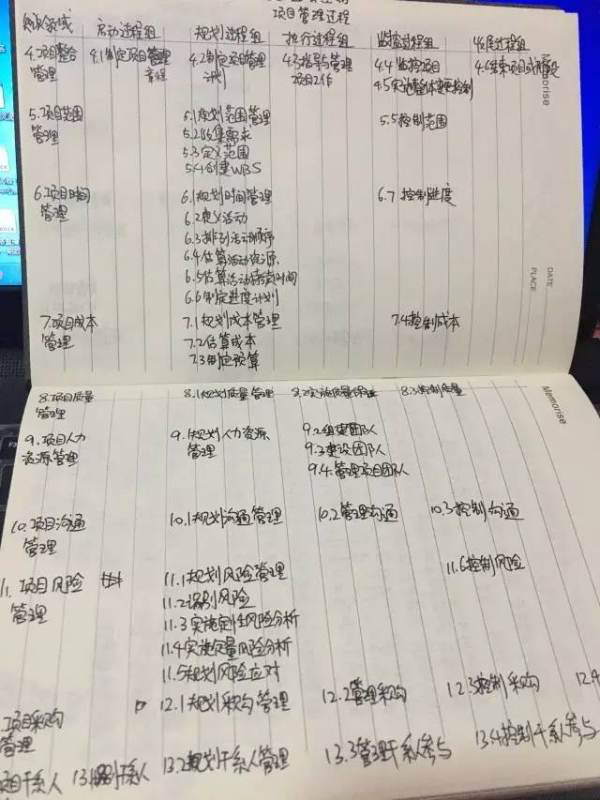 项目管理过程
知识领域 启动过程组 规划过程组 执行过程组 监控过程组 收尾过程组
4.项目整合 4.1制定项目管理 4.2制定项目管理 4.3指导与管理 4.4监控项目 4.6结束项目或阶段
管理 章程 计划 项目工作 4.5实施整体变更控制
Memorise
5.项目范围 5.1规划范围管理 5.5控制范围
管理 5.2收集需求
5.3定义范围
5.4创建WBS
6.项目时间 6.1规划时间管理 6.7控制进度
管理 6.2定义活动
6.3排列活动顺序
6.4估算活动资源
6.5估算活动持续时间
6.6制定进度计划
DATE
PLACE
7.项目成本 7.1规划成本管理 7.4控制成本
管理 7.2估算成本
7.3制定预算
8.项目质量 8.1规划质量管理 8.2实施质量保证 8.3控制质量
管理
Memorise
9.项目人力 9.1规划人力资源 9.2组建团队
资源管理 管理 9.3建设团队
9.4管理项目团队
10.项目沟通 10.1规划沟通管理 10.2管理沟通 10.3控制沟通
管理
11.项目风险 11.1规划风险管理 11.6控制风险
管理 11.2识别风险
11.3实施定性风险分析
11.4实施定量风险分析
11.5规划风险应对
项目采购 12.1规划采购管理 12.2管理采购 12.3控制采购 12.4
管理
项目干系人 13.1识别干系人 13.2规划干系人管理 13.3管理干系人参与 13.4控制干系人参与